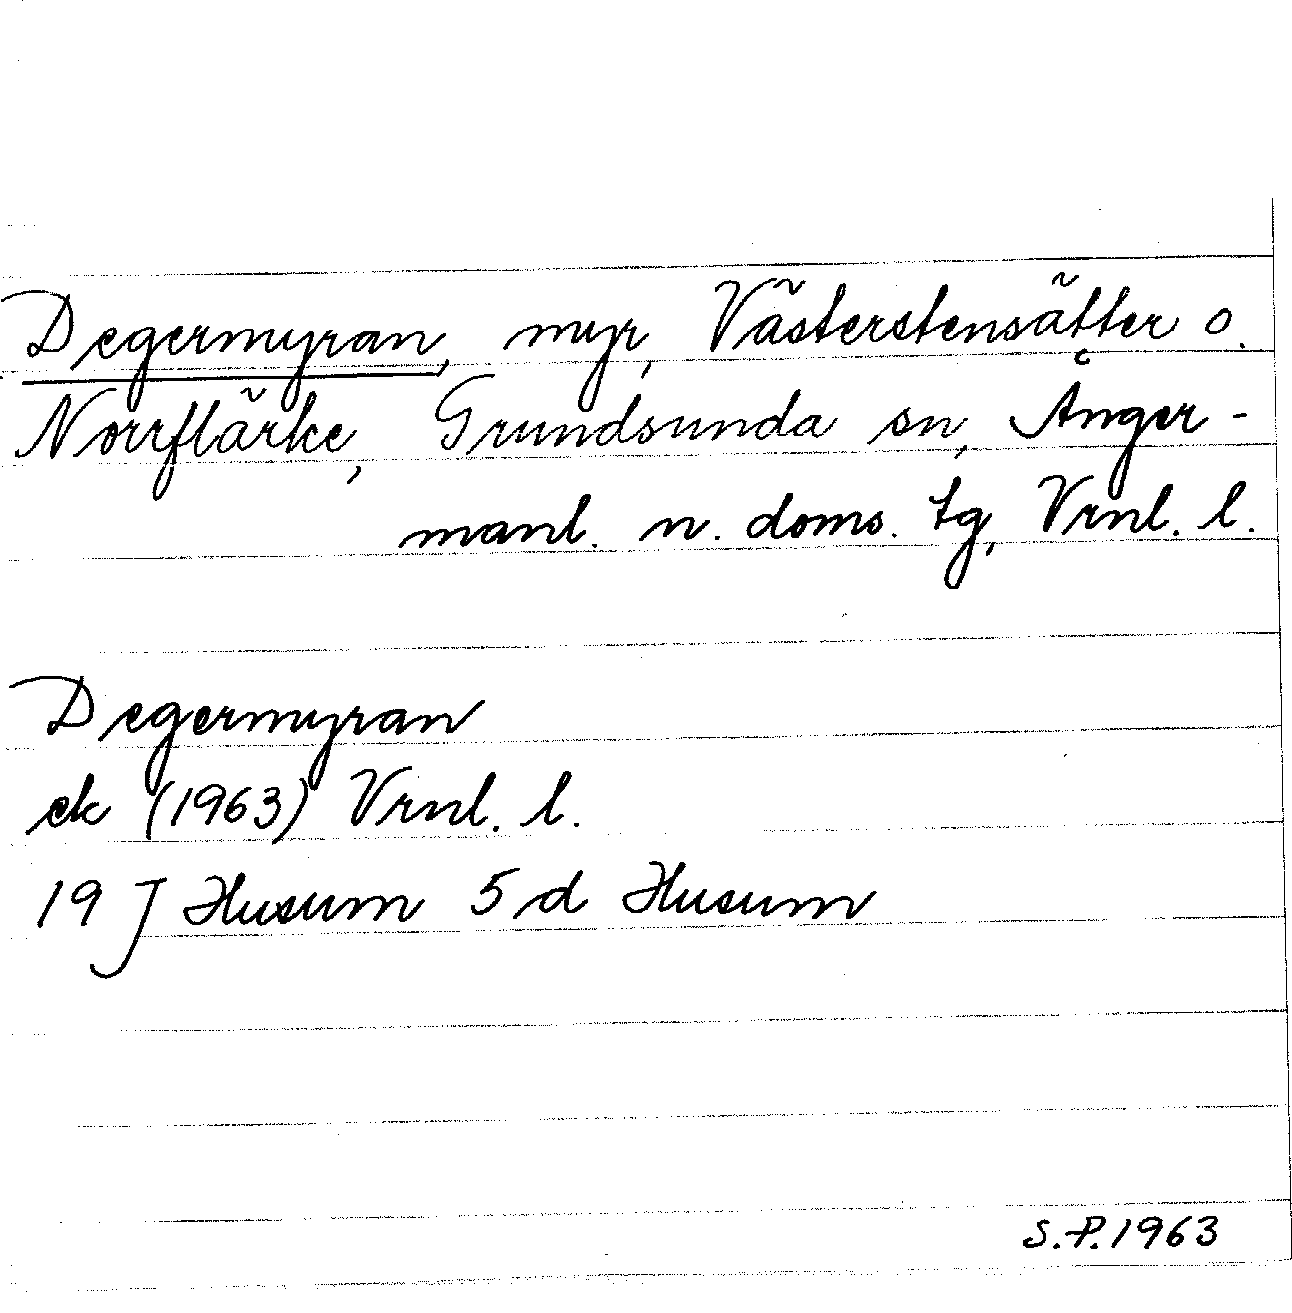 Degermyran, myr, Västerstensätter o.
Norrflärke, Grundsunda sn, Ånger-
manl. n. doms. tg, Vrnl. l.
Degermyran
ek (1963) Vrnl. l.
19 J Husum 5 d Husum
S.P. 1963